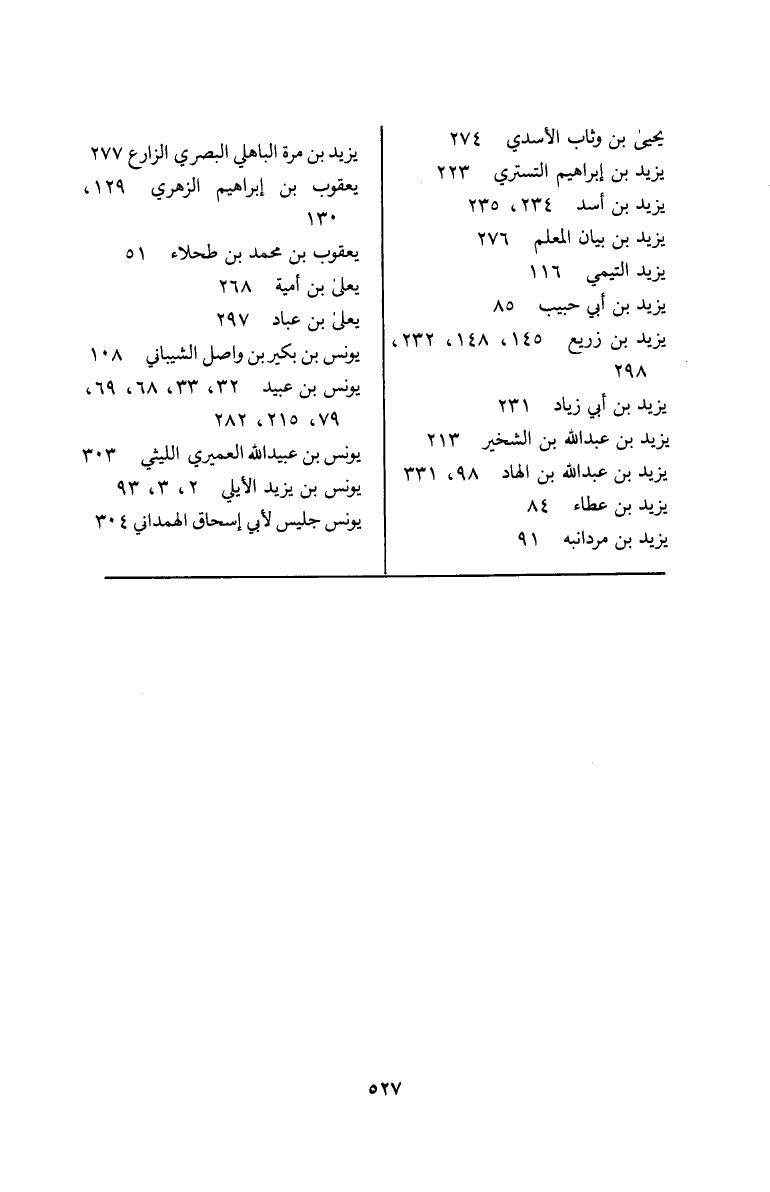 يحيىٰ بن وثاب الأسدي ٢٧٤
يزيد بن إبراهيم التستري ٢٢٣
يزيد بن أسد ٢٣٤، ٢٣٥
يزيد بن بيان المعلم ٢٧٦
يزيد التيمي ١١٦
يزيد بن أبي حبيب ٨٥
يزيد بن زريع ١٤٥، ١٤٨، ٢٣٢،
٢٩٨
يزيد بن أبي زياد ٢٣١
يزيد بن عبدالله بن الشخير ٢١٣
يزيد بن عبدالله بن الهاد ٩٨، ٣٣١
يزيد بن عطاء ٨٤
يزيد بن مردانبه ٩١
يزيد بن مرة الباهلي البصري الزارع ٢٧٧
يعقوب بن إبراهيم الزهري ١٢٩،
١٣٠
يعقوب بن محمد بن طحلاء ٥١
يعلىٰ بن أمية ٢٦٨
يعلىٰ بن عباد ٢٩٧
يونس بن بكير بن واصل الشيباني ١٠٨
يونس بن عبيد ٣٢، ٣٣، ٦٨، ٦٩،
٧٩، ٢١٥، ٢٨٢
يونس بن عبيدالله العميري الليثي ٣٠٣
يونس بن يزيد الأيلي ٢، ٣، ٩٣
يونس جليس لأبي إسحاق الهمداني ٣٠٤
٥٢٧